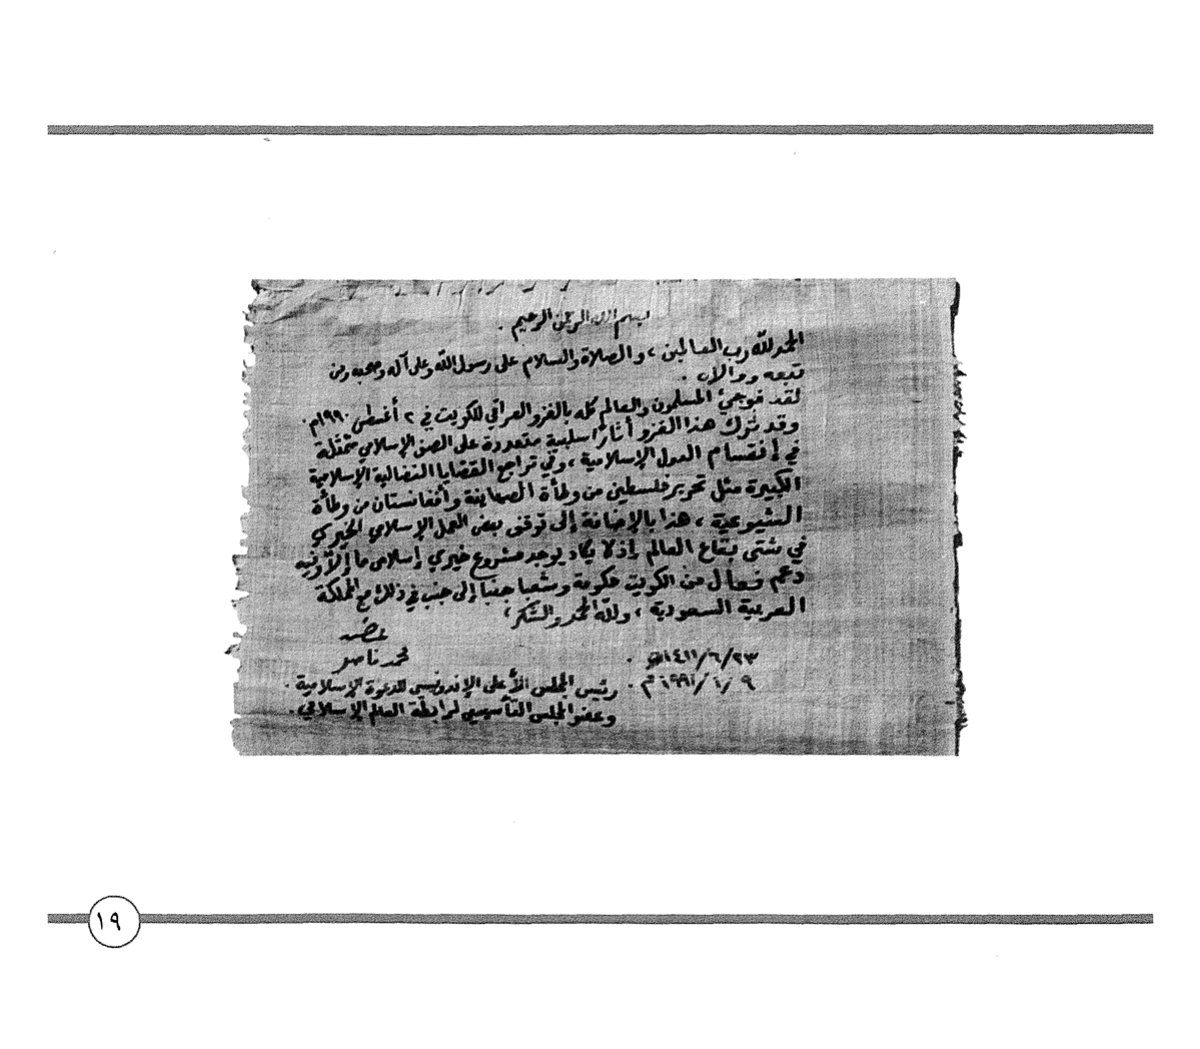 بسم الله الرحمن الرحيم .
الحمد لله رب العالمين ، والصلاة والسلام على رسول الله وعلى آله وصحبه ومن
تبعه ووالاه .
لقد فوجئ المسلمون والعالم كله بالغزو العراقي للكويت في ٢ أغسطس ١٩٩٠م .
وقد ترك هذا الغزو آثارا سلبية متعددة على الصف الإسلامي متمثلة
في إنقسام الدول الإسلامية ، وفي تراجع القضايا النضالية الإسلامية
الكبيرة مثل تحرير فلسطين من وطأة الصهاينة وأفغانستان من وطأة
الشيوعية ، هذا بالإضافة إلى توقف بعض العمل الإسلامي الخيري
في شتى بقاع العالم إذ لا يكاد يوجد مشروع خيري إسلامي ما إلا وفيه
دعم فعال من الكويت حكومة وشعبا جنبا إلى جنب في ذلك مع المملكة
العربية السعودية ، ولله الحمد والشكر ،
محمد ناصر
٢٣/٦/١٤١١هـ .
٩/١/١٩٩١م .
رئيس المجلس الأعلى الإندونيسي للدعوة الإسلامية .
وعضو المجلس التأسيسي لرابطة العالم الإسلامي .
١٩